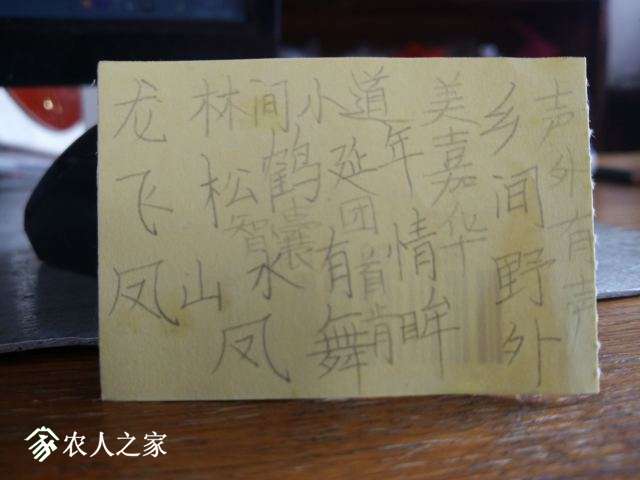 龙 林间小道 美 乡 声
飞 松鹤延年 嘉 间 外
智囊团 华 野 有
凤 山水有情 外 声
凤舞 眸
农人之家